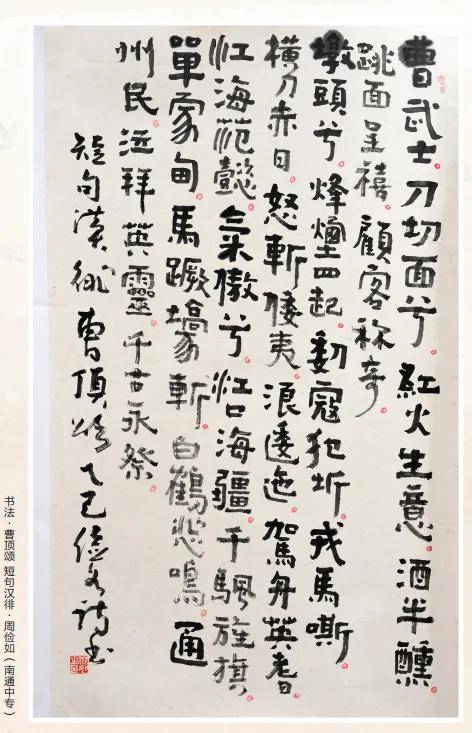 曹武士。刀切面兮。紅火生意。酒半醺
跳面呈禧。顧客称奇。
墩頭兮。烽煙四起。寇犯圻。戎馬嘶
橫刀赤日。怒斬倭夷。浪逶迤。駕舟英耆。
江海范懿。兮。江口海疆。千颿旌旗。
單家甸。馬蹶壕斬。白鶴悲鳴。通
州民。拜英靈。千古永祭。
短句漢徘 曹頂頌 乙巳儉如詩書
书法·曹顶颂 短句汉徘·周俭如（南通中专）